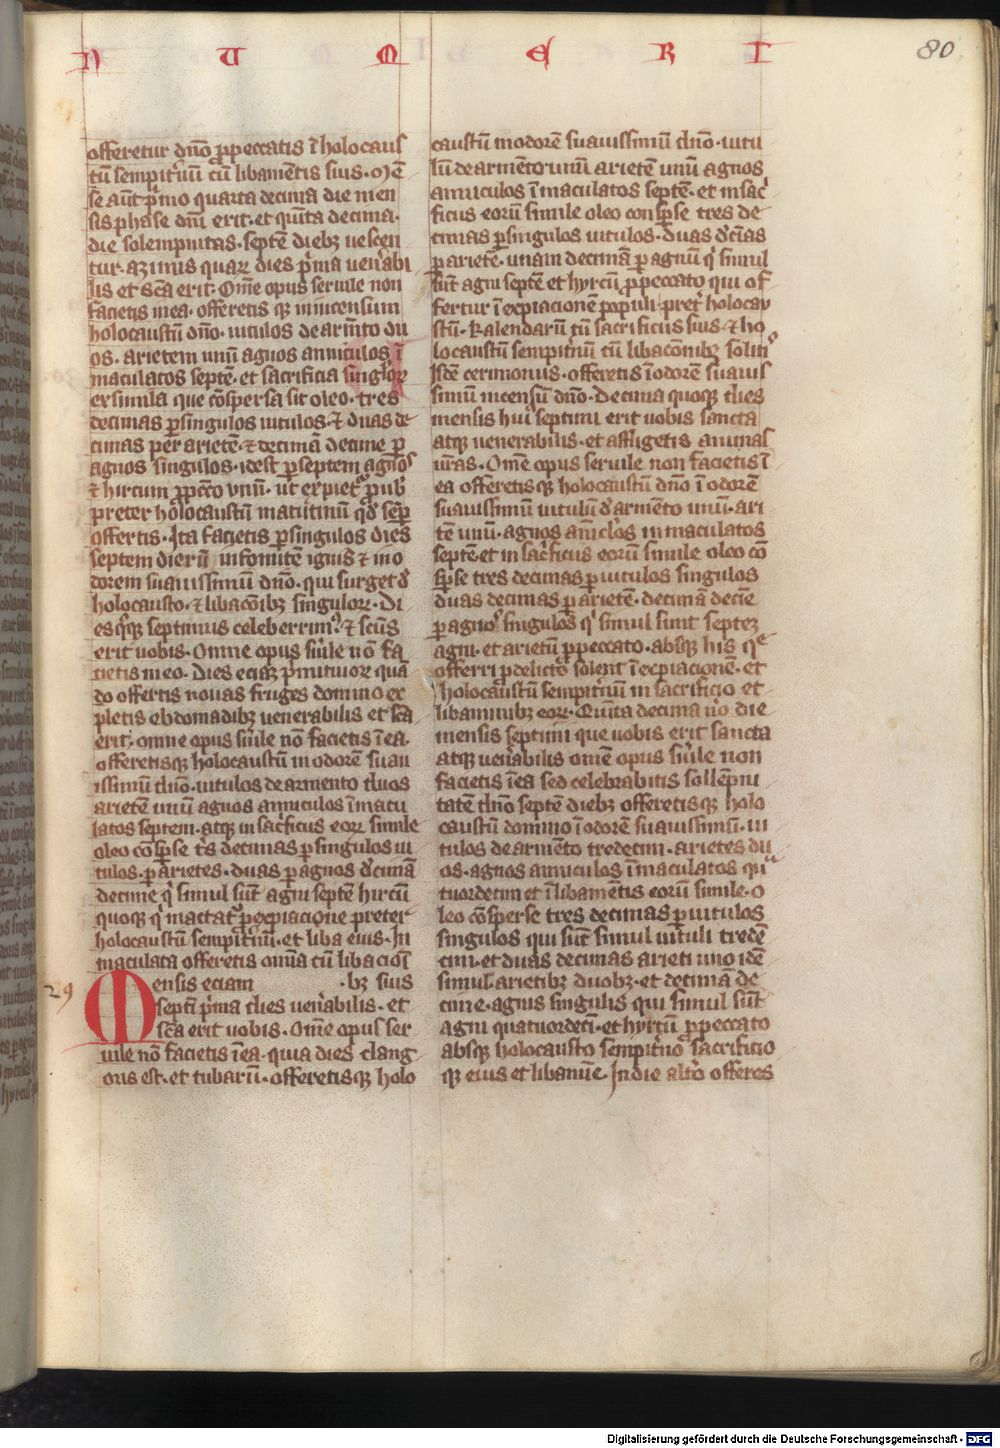 N U M E R I
80
offeretur dn̄o ꝓpeccatis ī holocaus
tū sempit'nū cū libamētis suis · Mē
se aūt p'mo quarta decima die men
sis phase dn̄i erit · et quīta decima ·
die solempnitas · septē diebꝫ uescen
tur · azimis quaꝝ dies p'ma uen'abi
lis et sc̄a erit · Om̄e opus seruile non
facietis in ea · offeretis qꝫ in incensum
holocaustū dn̄o · uitulos de arm̄to du
os · arietem unū agnos anniculos ī
maculatos septē · et sacrificia singl'oꝝ
ex simila que cōspersa sit oleo · tres
decimas ꝑ singulos uitulos · ⁊ duas de
cimas per arietē · ⁊ decimā decime ꝑ
agnos singulos · idest ꝑ septem agnos
⁊ hircum ꝓ pcc̄o vnū · ut expiet' ꝓ uob'
preter holocaustū matutinū qd' semꝑ
offertis · Ita facietis ꝑ singulos dies
septem dierū in fomitē ignis ⁊ in o
dorem suauissimū dn̄o · qui surget d'
holocausto · ⁊ libac̄oībꝫ singuloꝝ · Di
es q°qꝫ septimus celeberrim' ⁊ sc̄us
erit uobis · Omne opus s'uile nō fa
cietis in eo · Dies eciaꝫ p'mitiuoꝝ quā
do offertis nouas fruges domino ex
pletis ebdomadibꝫ uenerabilis et sc̄a
erit · omne opus s'uile nō facietis ī ea ·
offeretisqꝫ holocaustū in odorē suau
issimū dn̄o · uitulos de armento duos
arietē unū agnos anniculos īmacu
latos septem · atqꝫ in sac'ficiis eoꝝ simile
oleo cōsp̄se t'es decimas ꝑ singulos ui
tulos · ꝑ arietes · duas ꝑ agnos d'cimā
decime q' simul sūt agni septē hircū
quoqꝫ q' mactat' ꝓ expiacione preter
holocaustū sempit'nū · et liba eius · In
maculata offeretis omīa cū libacioī
29
Mensis eciam · bꝫ suis
septi p'ma dies uen'abilis · et
sc̄a erit uobis · Om̄e opus ser
uile nō facietis ī ea · quia dies clang
oris est · et tubarū · offeretisqꝫ holo
caustū in odorē suauissimū dn̄o · uitu
lū de armēto unū arietē unū agnos
anniculos īmaculatos septē · et in sac'
ficiis eorū simile oleo consp̄se tres de
cimas ꝑ singulos uitulos · duas d'cīas
ꝑ arietē · unam decimā ꝑ agnū q' simul
sūt agni septē et hyrcū ꝓ peccato qui of
fertur ī expiacionē populi · pret' holocau
stū · Kalendarū cū sacrificiis suis · ⁊ ho
locaustū sempit'nū cū libac̄onibꝫ soliti'
Isdē cerimoniis · offeretis ī odorē suauis
simū incensū dn̄o · Decima quoqꝫ dies
mensis hui' septimi erit uobis sancta
atqꝫ uenerabilis · et affligetis animas
ur̄as · Om̄e opus seruile non facietis ī
ea offeretis qꝫ holocaustū dn̄o ī odorē
suauissimū uitulū d' armēto unū · ari
tē unū · agnos an̄iclos in maculatos
septē · et in sac'ficiis eorū simile oleo cō
sp̄se tres decimas ꝑ uitulos singulos
duas decimas ꝑ arietē · decimā deciē
ꝑ agno' singulos q' simul sunt septeꝫ
agni · et arietū ꝓ peccato · absqꝫ his q
offerri ꝓ delicto solent ī expiacionē · et
holocaustū sempit'nū in sacrificio et
libaminibꝫ eoꝝ · Quīta decima u'o die
mensis septimi que uobis erit sancta
atqꝫ uen'abilis omē opus s'uile non
facietis ī ea sed celebrabitis sollēpni
tatē dn̄o septē diebꝫ offeretisqꝫ holo
caustū domino ī odorē suauissimū · ui
tulos de armēto tredecim · arietes du
os · agnos anniculos īmaculatos qu
tuordecim et ī libamētis eorū simile · o
leo cōsperse tres decimas ꝑ uitulos
singulos qui sūt simul uituli tredē
cim · et duas decimas arieti uno idē
simul arietibꝫ duobꝫ · et decimā de
cime · agnis singulis qui simul sūt
agni quatuordeci · et hyrcū ꝓ peccato
absqꝫ holocausto sempit'no sacrificio
qꝫ eius et libamīe · In die alt'o offeres
Digitalisierung gefördert durch die Deutsche Forschungsgemeinschaft - DFG